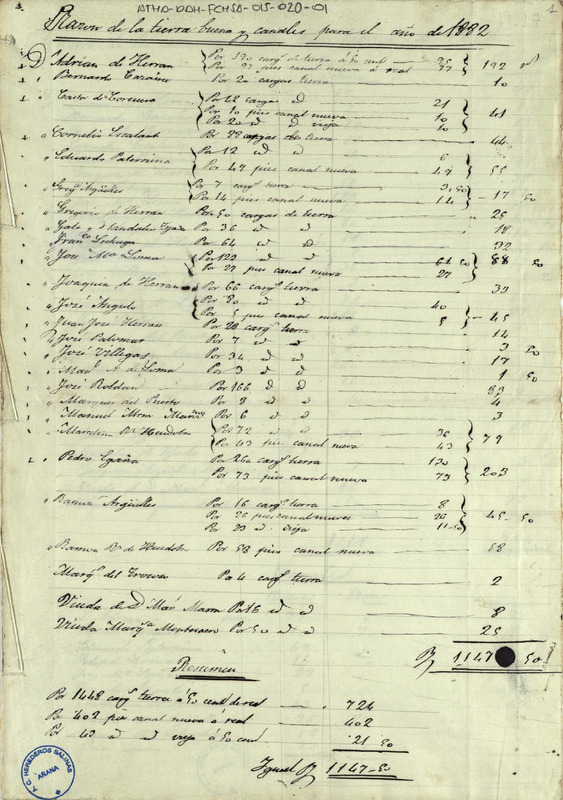 ATHA-DAH-FCHSA-015-020-01
1
Razon de la tierra buena y canales para el año de 1882
Adrian de Herran Por 190 cargs de tierra á 50 cent 95
Por 97 pies canal nueva á real 97 192
Bernardo Por 20 cargas tierra 10
Castor de Por 42 cargas id 21
Por 10 pies canal nueva 10
Por 20 id id vieja 10 41
Cornelio Escalant Por 88 cargas de tierra 44
Eduardo Paternina Por 12 id id 6
Por 49 pies canal nueva 49 55
Gregº Argüelles Por 7 cargs tierra 3,50
Por 14 pies canal nueva 14 17 50
Gregorio de Herran Por 50 cargas de tierra 25
Por 36 id id 18
Franco Lechuga Por 64 id id 32
Jose Ma Lima Por 123 id id 61 50
Por 27 pies canal nueva 27 88 50
Joaquin de Herran Por 66 cargs tierra 33
José Angulo Por 80 id id 40
Por 5 pies canal nueva 5 45
Juan José Herran Por 28 cargs tierra 14
José Palomar Por 7 id id 3 50
José Villegas Por 34 id id 17
Manl A. de Lima Por 3 id id 1 50
José Roldan Por 166 id id 83
Marques del Puerto Por 8 id id 4
Manuel Mra Por 6 id id 3
Marcelino Rz Heudobro Por 72 id id 36
Por 43 pies canal nueva 43 79
Pedro Egaña Por 260 cargs tierra 130
Por 73 pies canal nueva 73 203
Ramon Argüelles Por 16 cargs tierra 8
Por 26 pies canal nueva 26
Por 23 id vieja 11-50 45-50
Ramon Rz de Heudobro Por 58 pies canal nueva 58
Marqs del Por 4 cargs tierra 2
Viuda de D Man Marra Por 16 id id 8
Viuda Marqsa Montesacro Por 50 id id 25
R 1147 50
Resumen
Por 1448 cargs tierra á 50 cents de real 724
Por 402 pies canal nueva á real 402
Por 43 id id vieja á 50 cent 21 50
Igual R 1147-50
A. C. HEREDEROS SALINAS
ARANA